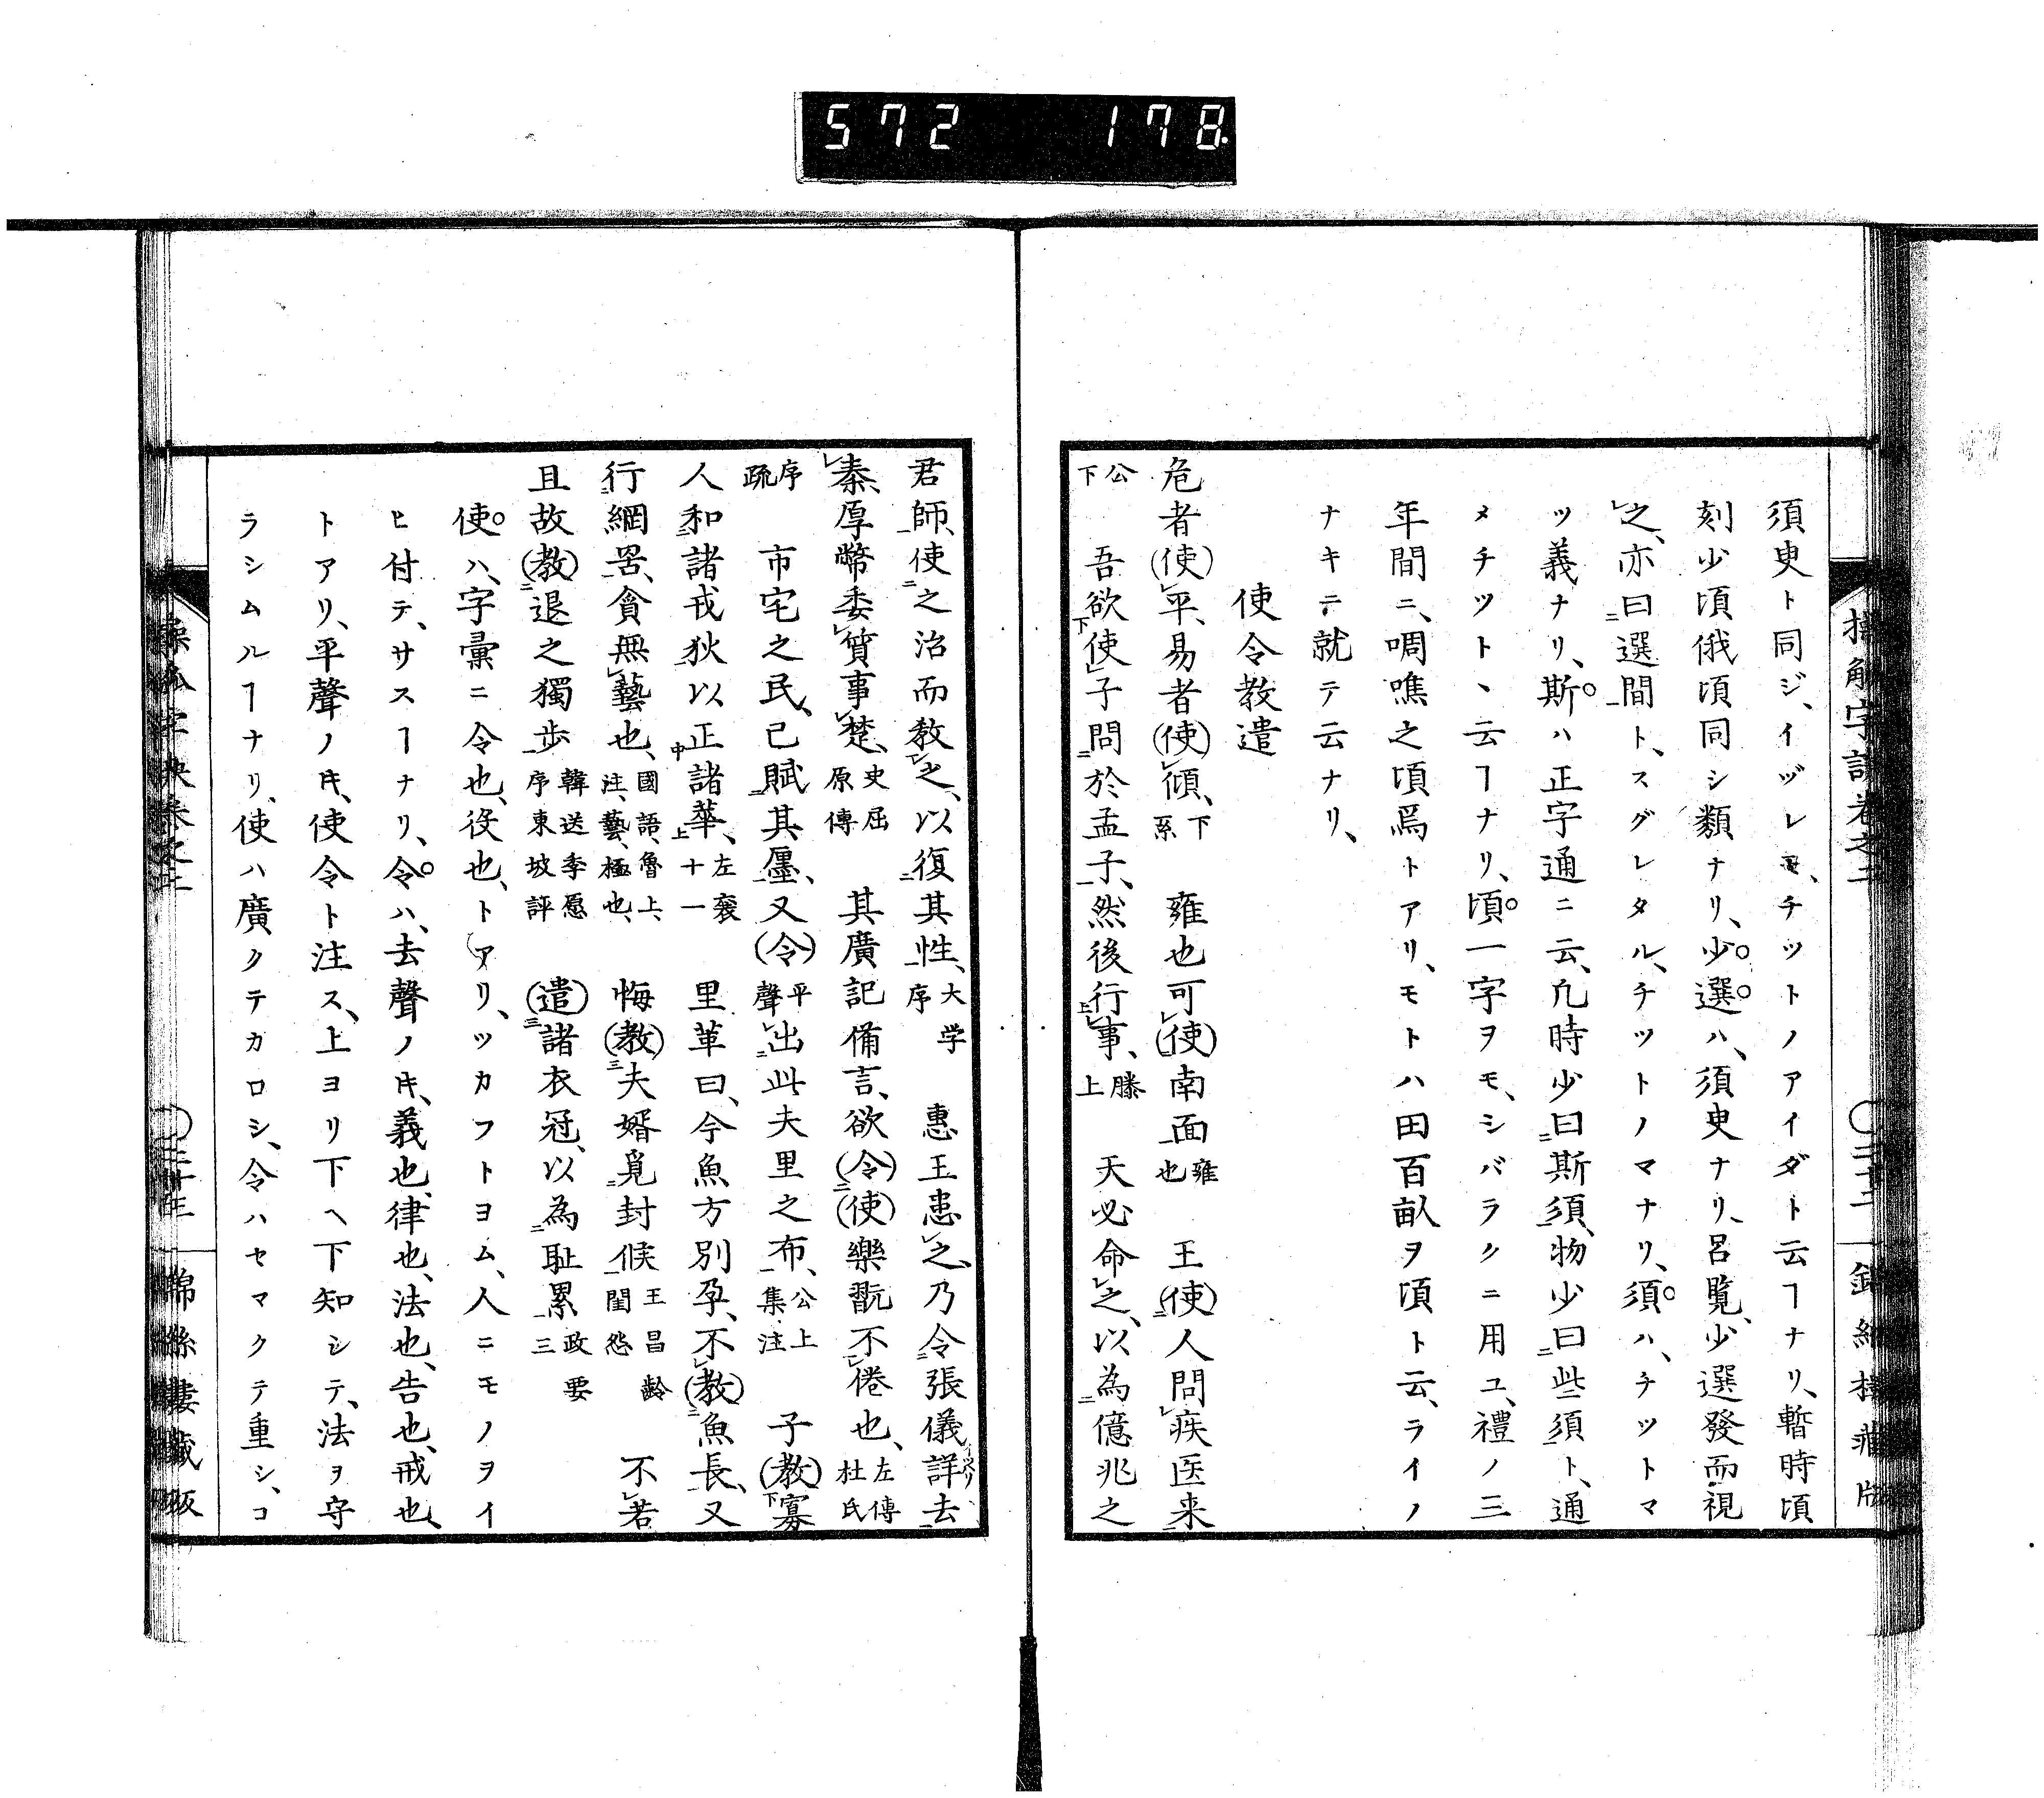 572 178
須臾ト同ジ、イヅレモ、チツトノアイダト云ヿナリ、暫時頃
刻少頃俄頃同シ類ナリ、少選ハ、須臾ナリ、呂覧、少選發而視
之、亦曰選間ト、スグレタル、チツトノマナリ、須ハ、チツトマ
ツ義ナリ、斯ハ正字通ニ云、凡時少曰斯須、物少曰些須ト、通
メチツト、云ヿナリ、頃一字ヲモ、シバラクニ用ユ、禮ノ三
年間ニ、啁噍之頃焉トアリ、モトハ田百畝ヲ頃ト云、ライノ
ナキニ就テ云ナリ、
使令教遣
危者(使)平、易者(使)傾、下系 雍也可(使)南面雍也 王(使)人問疾医来
公下 吾欲使子問於孟子、然後行事、滕上 天必命之、以為億兆之
君師、使之治而教之、以復其性、大学序 惠王患之、乃令張儀詳去
秦、厚幣委質事楚、史屈原傳 其廣記備言、欲(令)(使)樂翫不倦也、左傳杜氏
序疏 市宅之民、已賦其廛、又(令)平聲出此夫里之布、公上集注 子(教)寡
人和諸戎狄以正諸華、左襄十一 里革曰、今魚方別孕、不(教)魚長、又
行網罟、貪無藝也、國語、魯上、注、藝、極也、 悔(教)夫婿覓封候王昌齡閨怨 不若
且故(教)退之獨歩韓送李愿序東坡評 (遣)諸衣冠、以為耻累政要三
使ハ、字彙ニ令也、役也、トアリ、ツカフトヨム、人ニモノヲイ
ヒ付テ、サスヿナリ、令ハ、去聲ノ𪜈、義也、律也、法也、告也、戒也、
トアリ、平聲ノ𪜈、使令ト注ス、上ヨリ下ヘ下知シテ、法ヲ守
ラシムルヿナリ、使ハ廣クテカロシ、令ハセマクテ重シ、コ